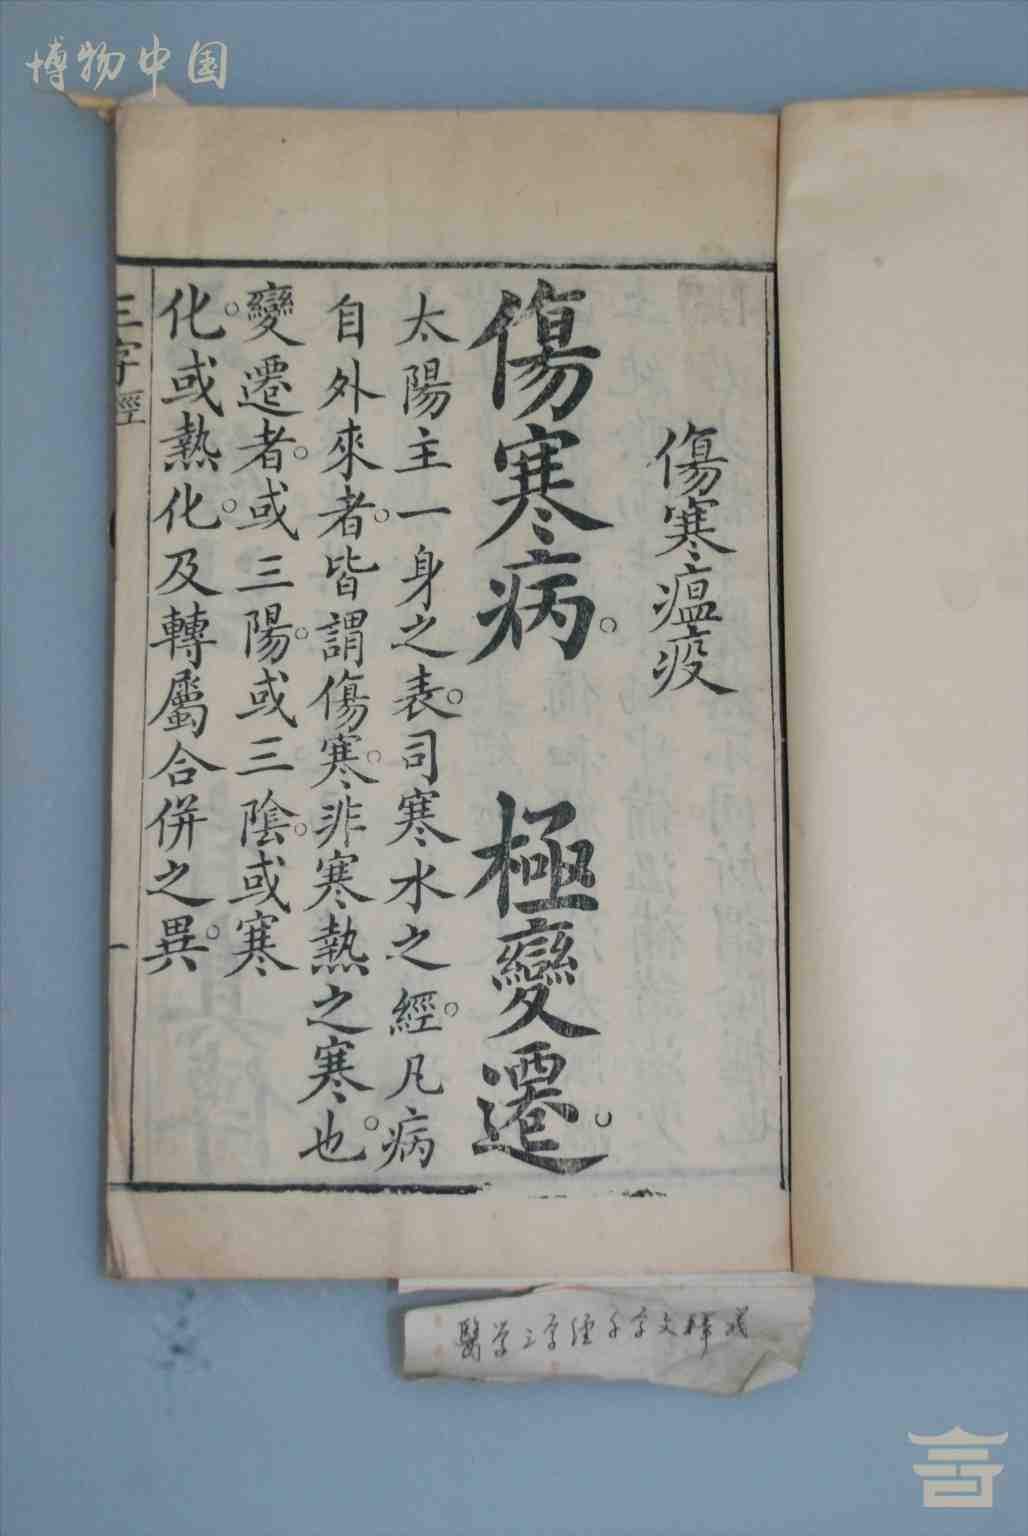 博物中国
傷寒瘟疫
傷寒病。極變遷。
太陽主一身之表。司寒水之經。凡病
自外來者。皆謂傷寒。非寒熱之寒也。
變遷者。或三陽。或三陰。或寒
化。或熱化。及轉屬合併之異。
三字經
一
醫学三字经千字文釋義